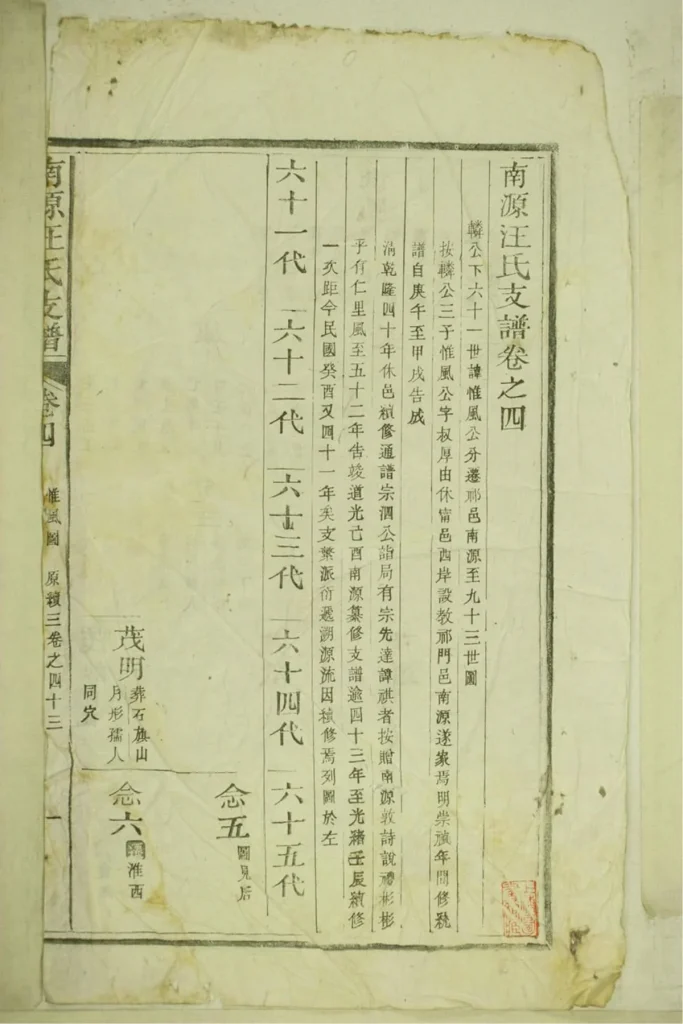 南源汪氏支譜卷之四
轔公下六十一世諱惟風公分遷祁邑南源至九十三世圖
按轔公三子惟風公字叔厚由休甯邑西岸設教祁門邑南源遂家焉明崇禎年間修統
譜自庚午至甲戌告成
清乾隆四十年休邑續修通譜宗泗公詣局有宗先達諱祺者按贈南源敦詩說禮彬彬
乎有仁里風至五十二年告竣道光己酉南源纂修支譜逾四十三年至光緒壬辰續修
一次距今民國癸酉又四十一年矣支繁派衍遞溯源流因續修焉列圖於左
六十一代 六十二代 六十三代 六十四代 六十五代
念五 圖見后
茂明 葬石旗山
月形孺人
同穴
念六 遷淮西
南源汪氏支譜 卷四 惟風圖 原續三卷之四十三 一